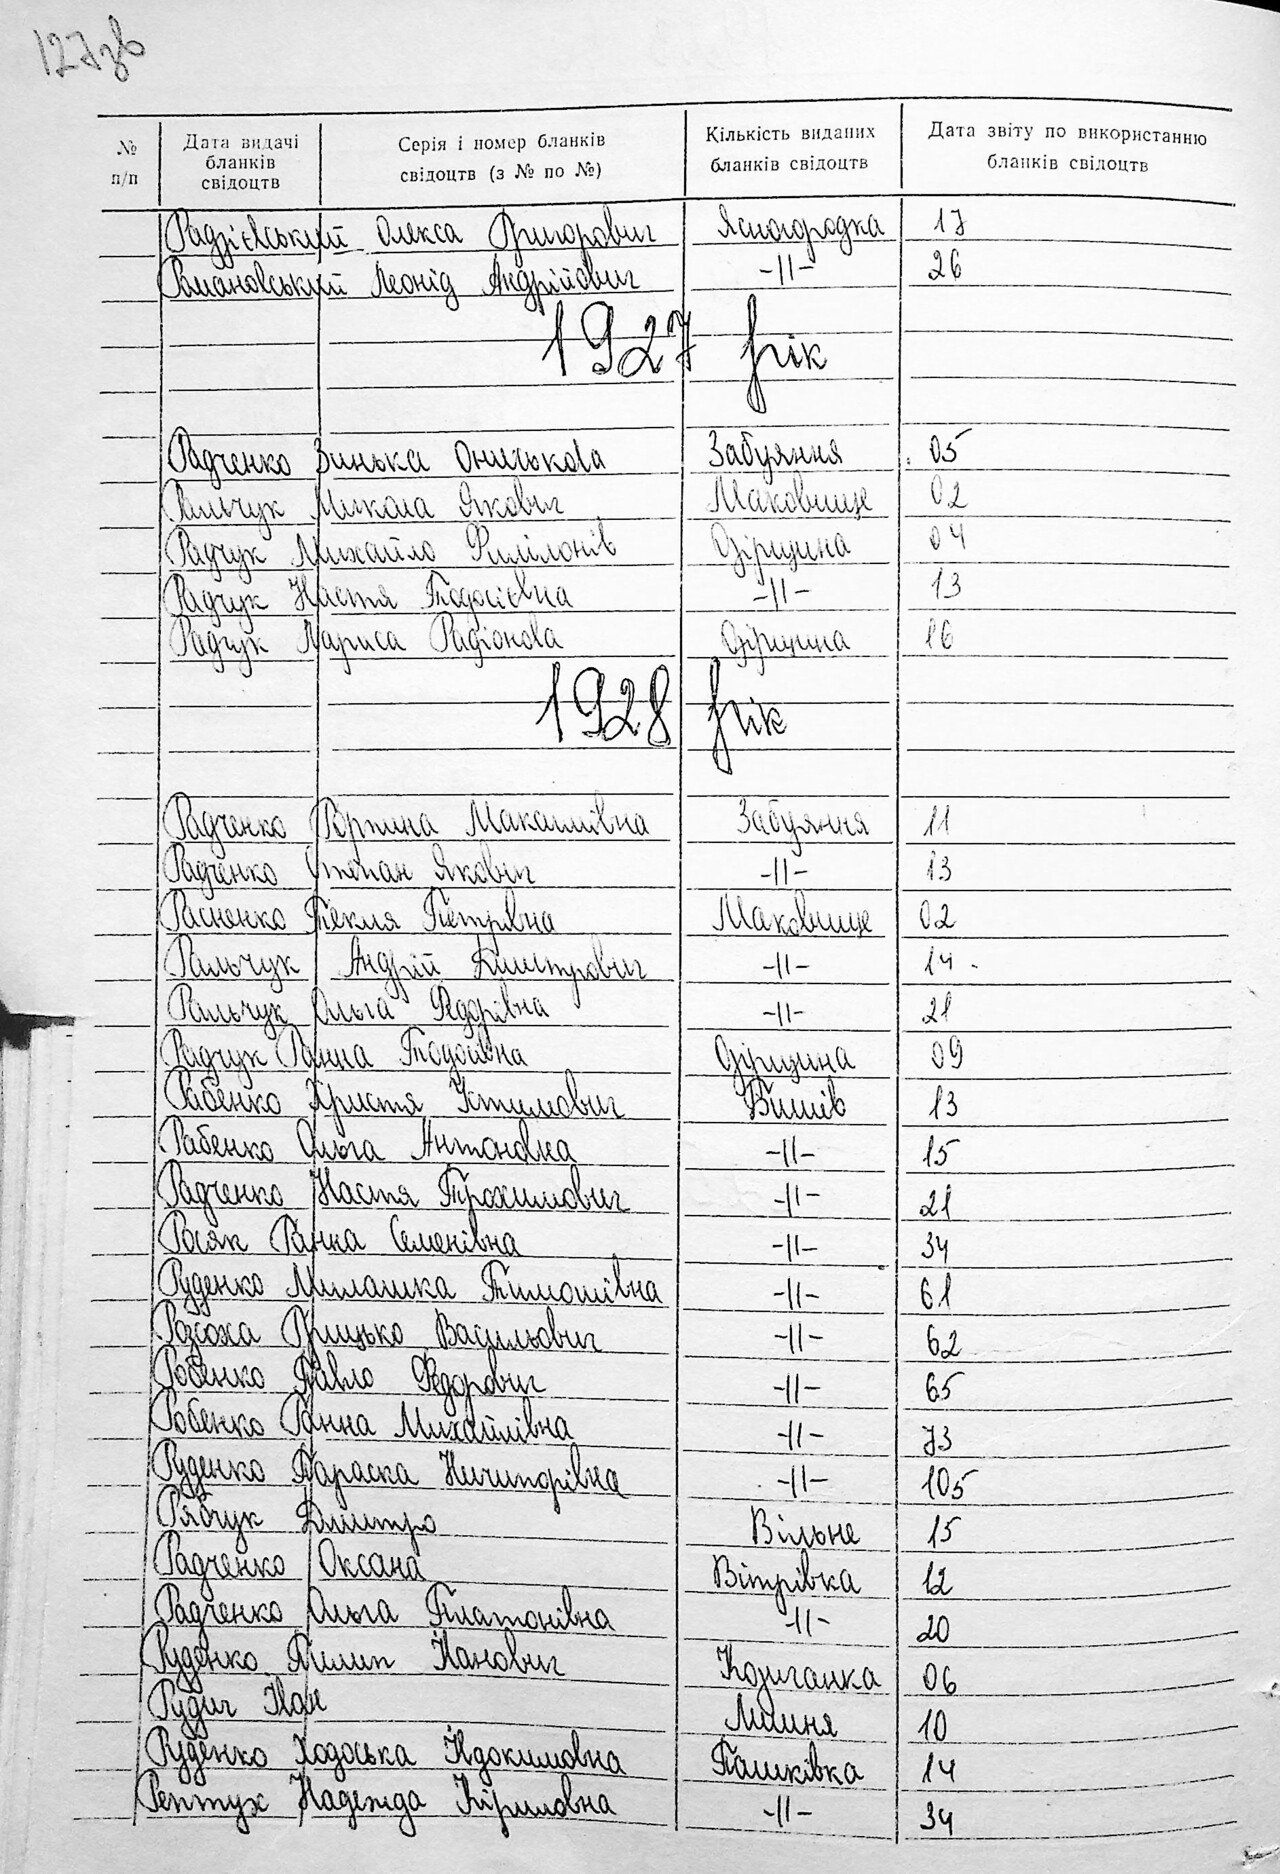 127зв
№ п/п Дата видачі бланків свідоцтв Серія і номер бланків свідоцтв (з № по №) Кількість виданих бланків свідоцтв Дата звіту по використанню бланків свідоцтв
Радзієвський Олекса Григорович Ясногородка 17
Романовський Леонід Андрійович -||- 26
1927 рік
Радченко Зинька Ониськова Забуяння 05
Рильчук Микола Якович Маковище 02
Радчук Михайло Филімонів Озірщина 04
Радчук Настя Тодосієвна -||- 13
Радчук Лариса Радіонова Озірщина 16
1928 рік
Радченко Горпина Макаливна Забуяння 11
Радченко Степан Якович -||- 13
Расненко Текля Петрівна Маковище 02
Рильчук Андрій Дмитрович -||- 14
Рильчук Ольга Федорівна -||- 21
Радчук Ганна Тодосівна Озірщина 09
Рабенко Христя Устимович Бишів 13
Рабенко Ольга Антоновна -||- 15
Радченко Настя Трохимович -||- 21
Росяк Ганка Семенівна -||- 34
Руденко Милашка Тимошівна -||- 61
Розсоха Грицько Васильович -||- 62
Робенко Павло Федорович -||- 65
Робенко Ганна Михайлівна -||- 73
Руденко Параска Ничипорівна -||- 105
Рябчук Дмитро Вільне 15
Радченко Оксана Вітрівка 12
Радченко Ольга Платонівна -||- 20
Руденко Пилип Іванович Козичанка 06
Рудич Іван Лишня 10
Руденко Ходоська Івдокимовна Пашківка 14
Рептух Надежда Кіриловна -||- 34